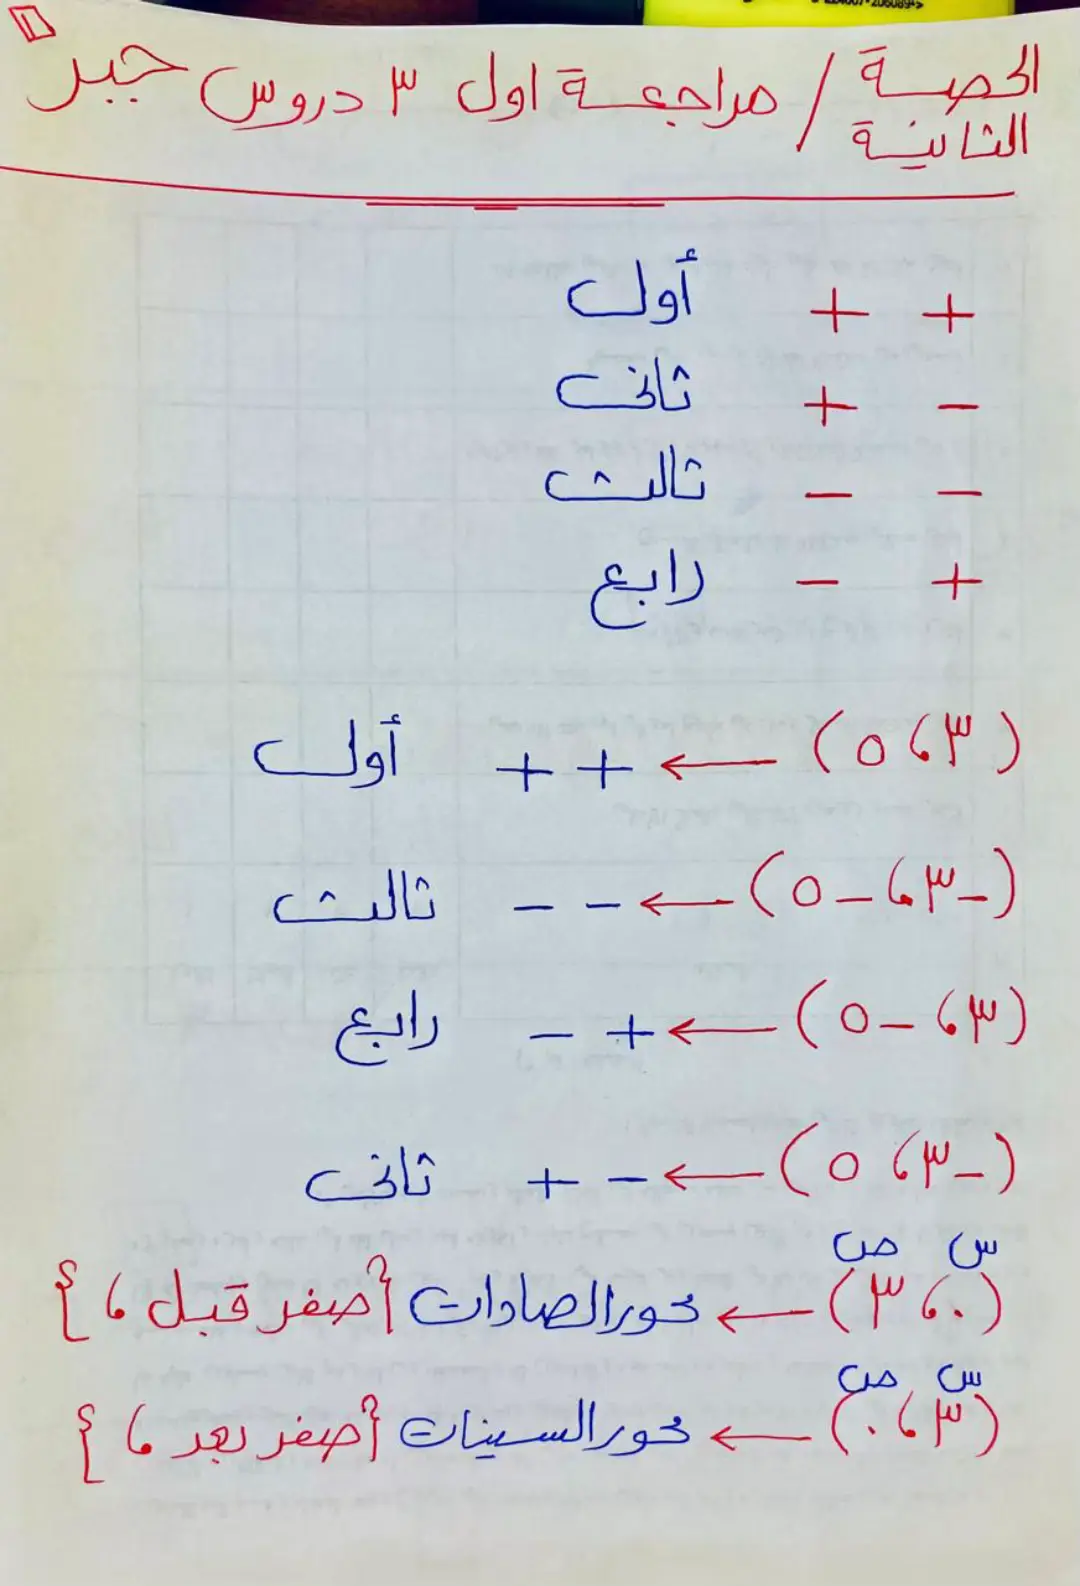 ١
الحصة الثانية / مراجعة اول ٣ دروس جبر
+ + أول
- + ثانى
- - ثالث
+ - رابع
(٣، ٥) ← + + أول
(-٣، -٥) ← - - ثالث
(٣، -٥) ← + - رابع
(-٣، ٥) ← - + ثانى
س ص
(٠، ٣) ← محور الصادات {صفر قبل ،}
س ص
(٣، ٠) ← محور السينات {صفر بعد ،}